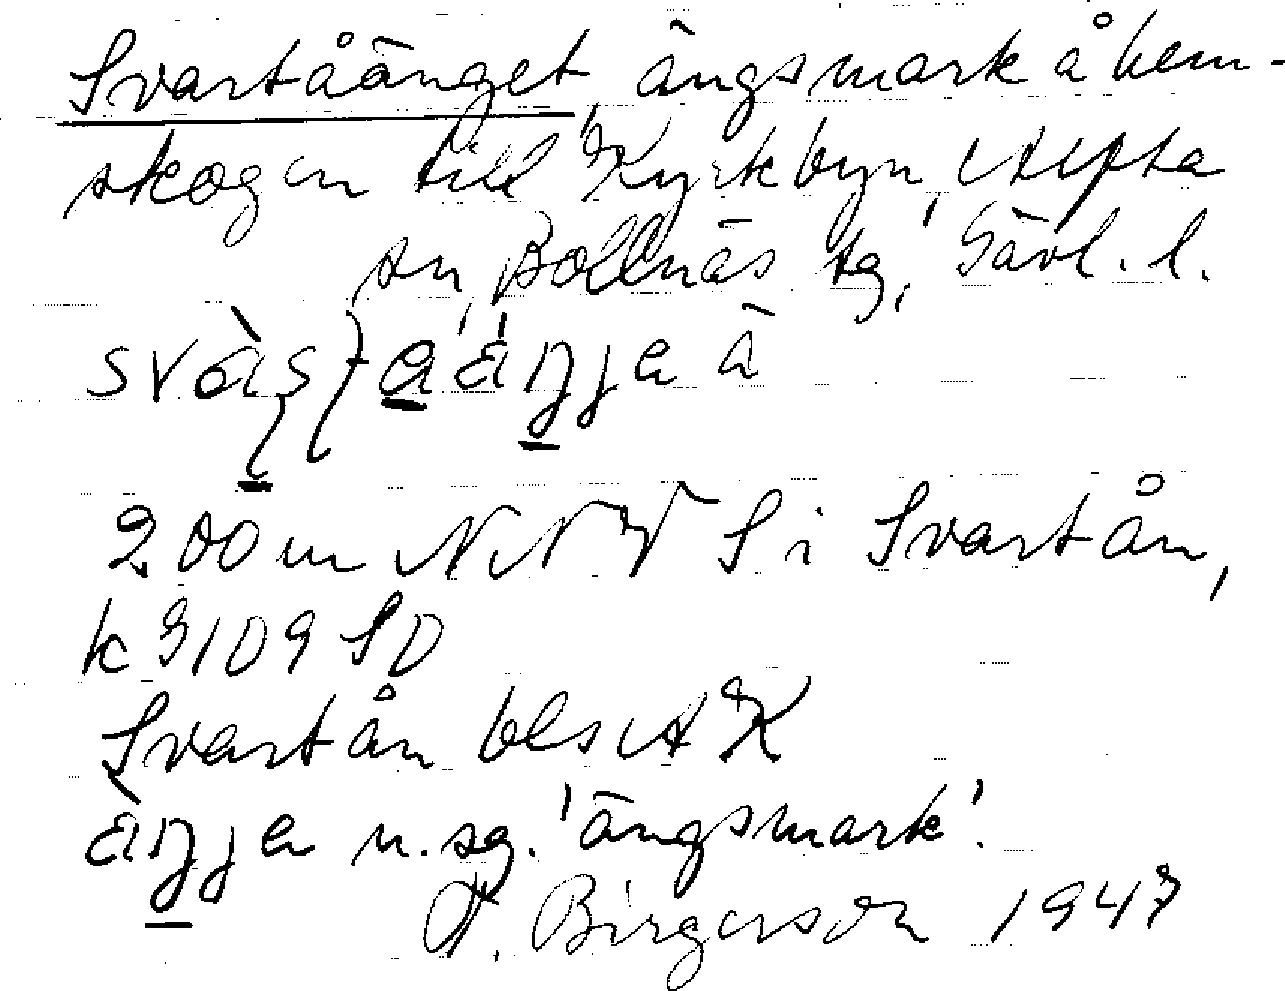 Svartåänget, ängsmark å hem-
skogen till Kyrkbyn, Alfta
sn, Bollnäs tg, Gävl. l.
200 m NNV S i Svartån,
k 9109 SO
Svartån bls AK
n. sg. 'ängsmark'.
H. Birgerson 1947